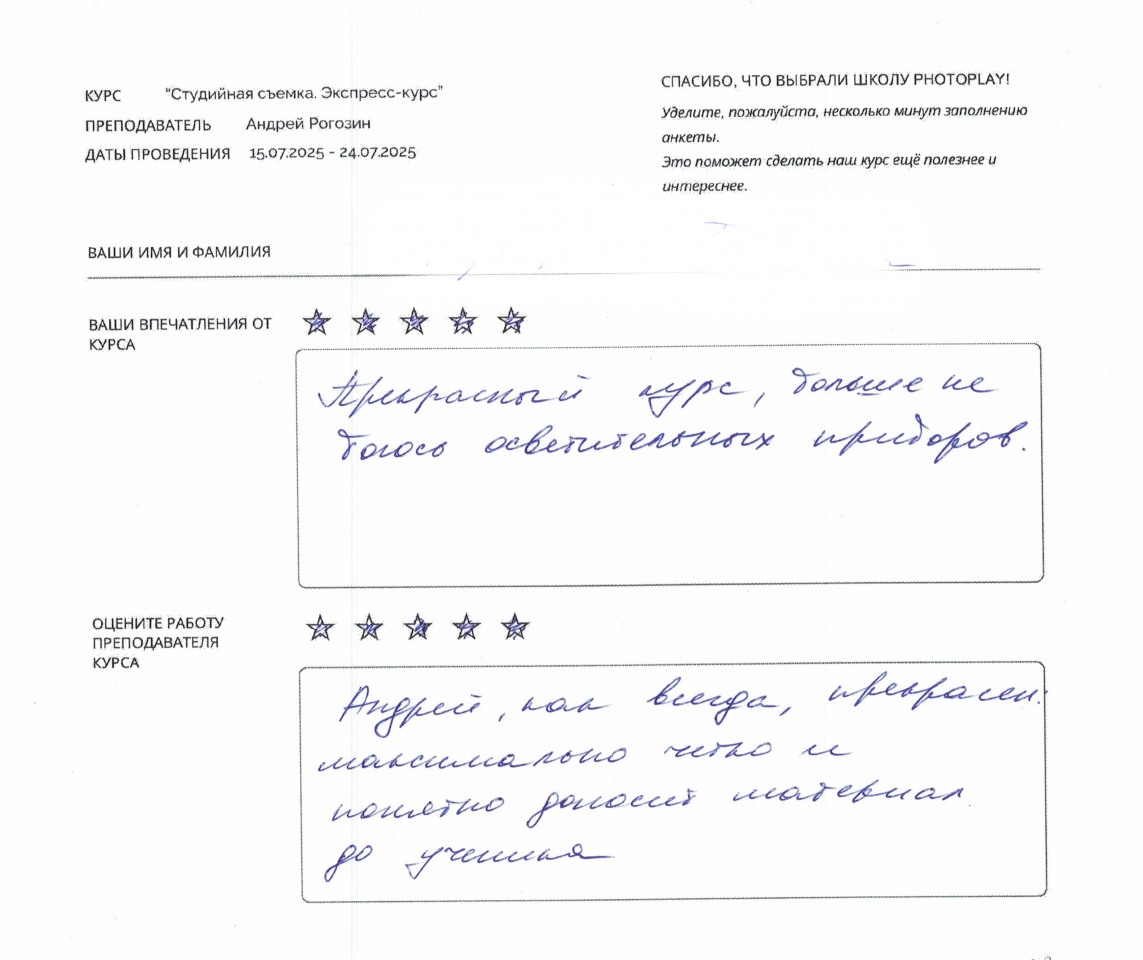 КУРС "Студийная съемка. Экспресс-курс"
ПРЕПОДАВАТЕЛЬ Андрей Рогозин
ДАТЫ ПРОВЕДЕНИЯ 15.07.2025 - 24.07.2025
СПАСИБО, ЧТО ВЫБРАЛИ ШКОЛУ PHOTOPLAY!
Уделите, пожалуйста, несколько минут заполнению
анкеты.
Это поможет сделать наш курс ещё полезнее и
интереснее.
ВАШИ ИМЯ И ФАМИЛИЯ
ВАШИ ВПЕЧАТЛЕНИЯ ОТ
КУРСА
Прекрасный курс, больше не
боюсь осветительных приборов.
ОЦЕНИТЕ РАБОТУ
ПРЕПОДАВАТЕЛЯ
КУРСА
Андрей, как всегда, прекрасен:
максимально четко и
понятно доносит материал
до ученика